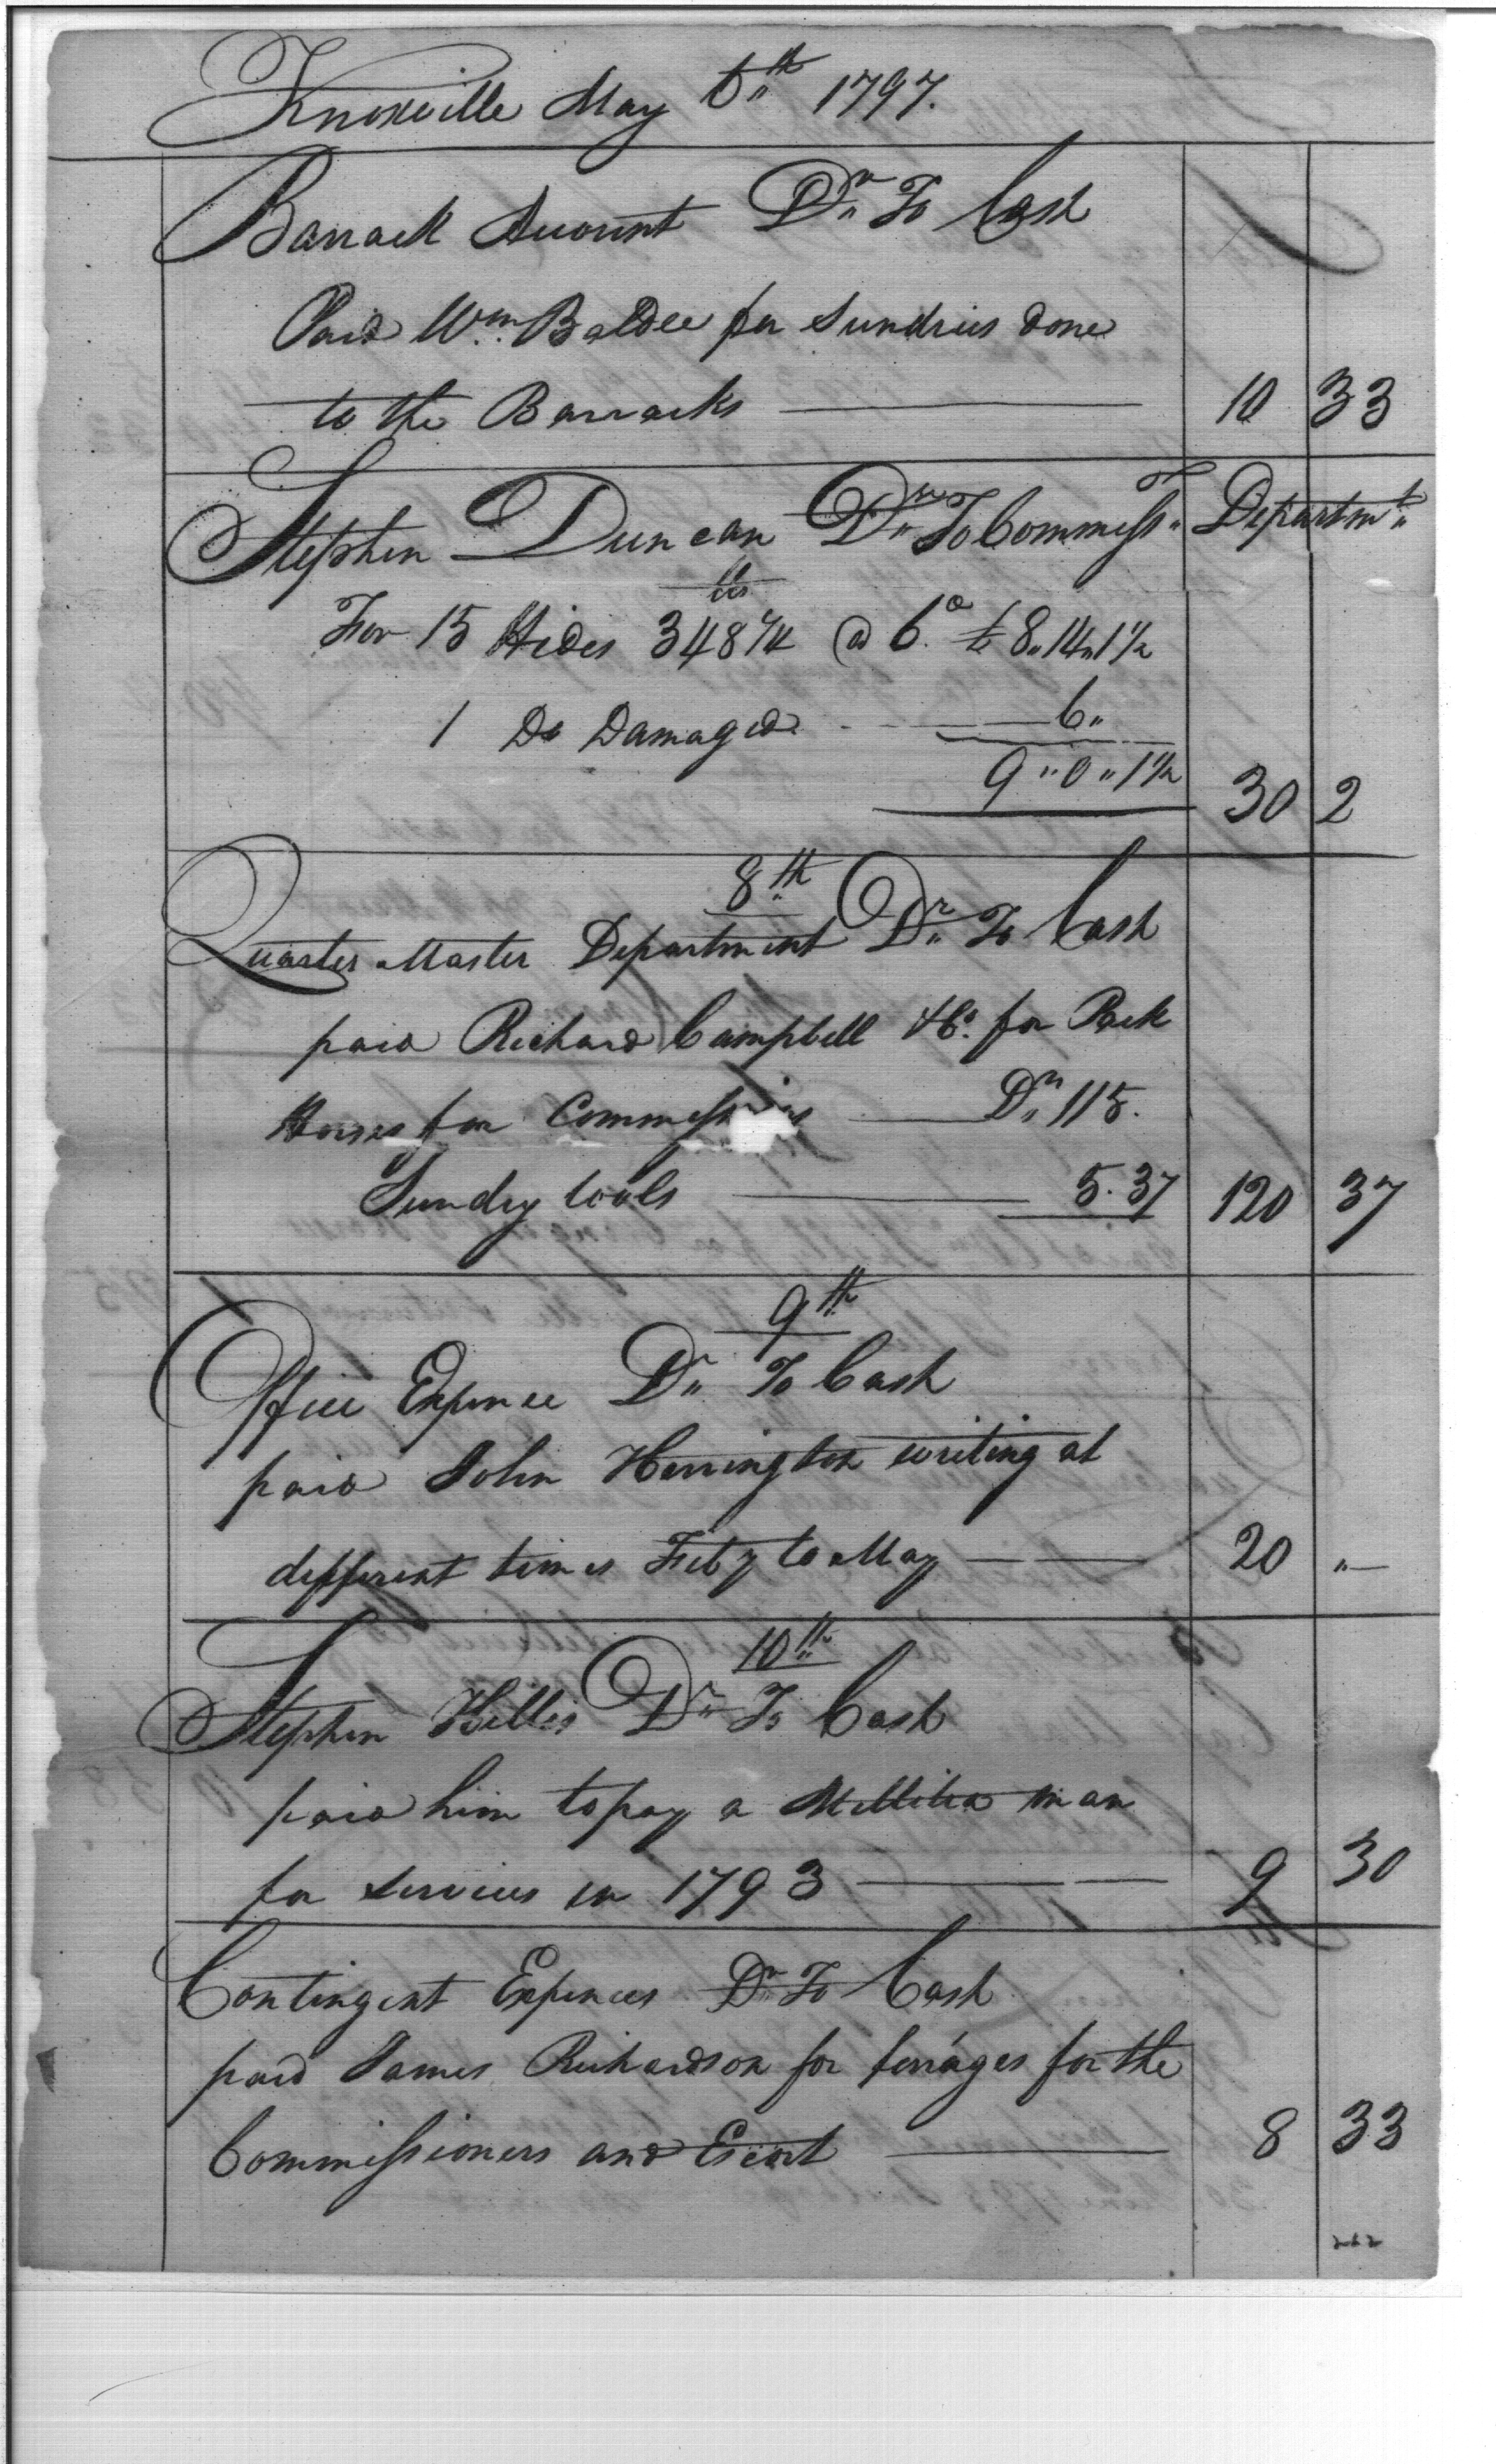 Knoxville May 6th 1797.
Barrack Account Dr To Cash
Paid Wm. Baldee for Sundries done
to the Barracks 10 33
Stephen Duncan Dr To Commissy Departmt
lbs
For 15 Hides 348 1/4 @ 6d £ 8"14"1 1/2
1 Do Damaged 6"
9"0"1 1/2 30 2
8th
Quarter Master Department Dr To Cash
paid Richard Campbell &Co. for Pack
Horses for Commissioners Drs 115.
Sundry tools 5.37 120 37
9th
Office Expence Dr To Cash
paid John Herrington writing at
different times Feby to May 20 "
10th
Stephen Hillis Dr To Cash
paid him to pay a Millitia man
for services in 1793 9 30
Contingent Expences Dr To Cash
paid James Richardson for ferrages for the
Commissioners and Escort 8 33